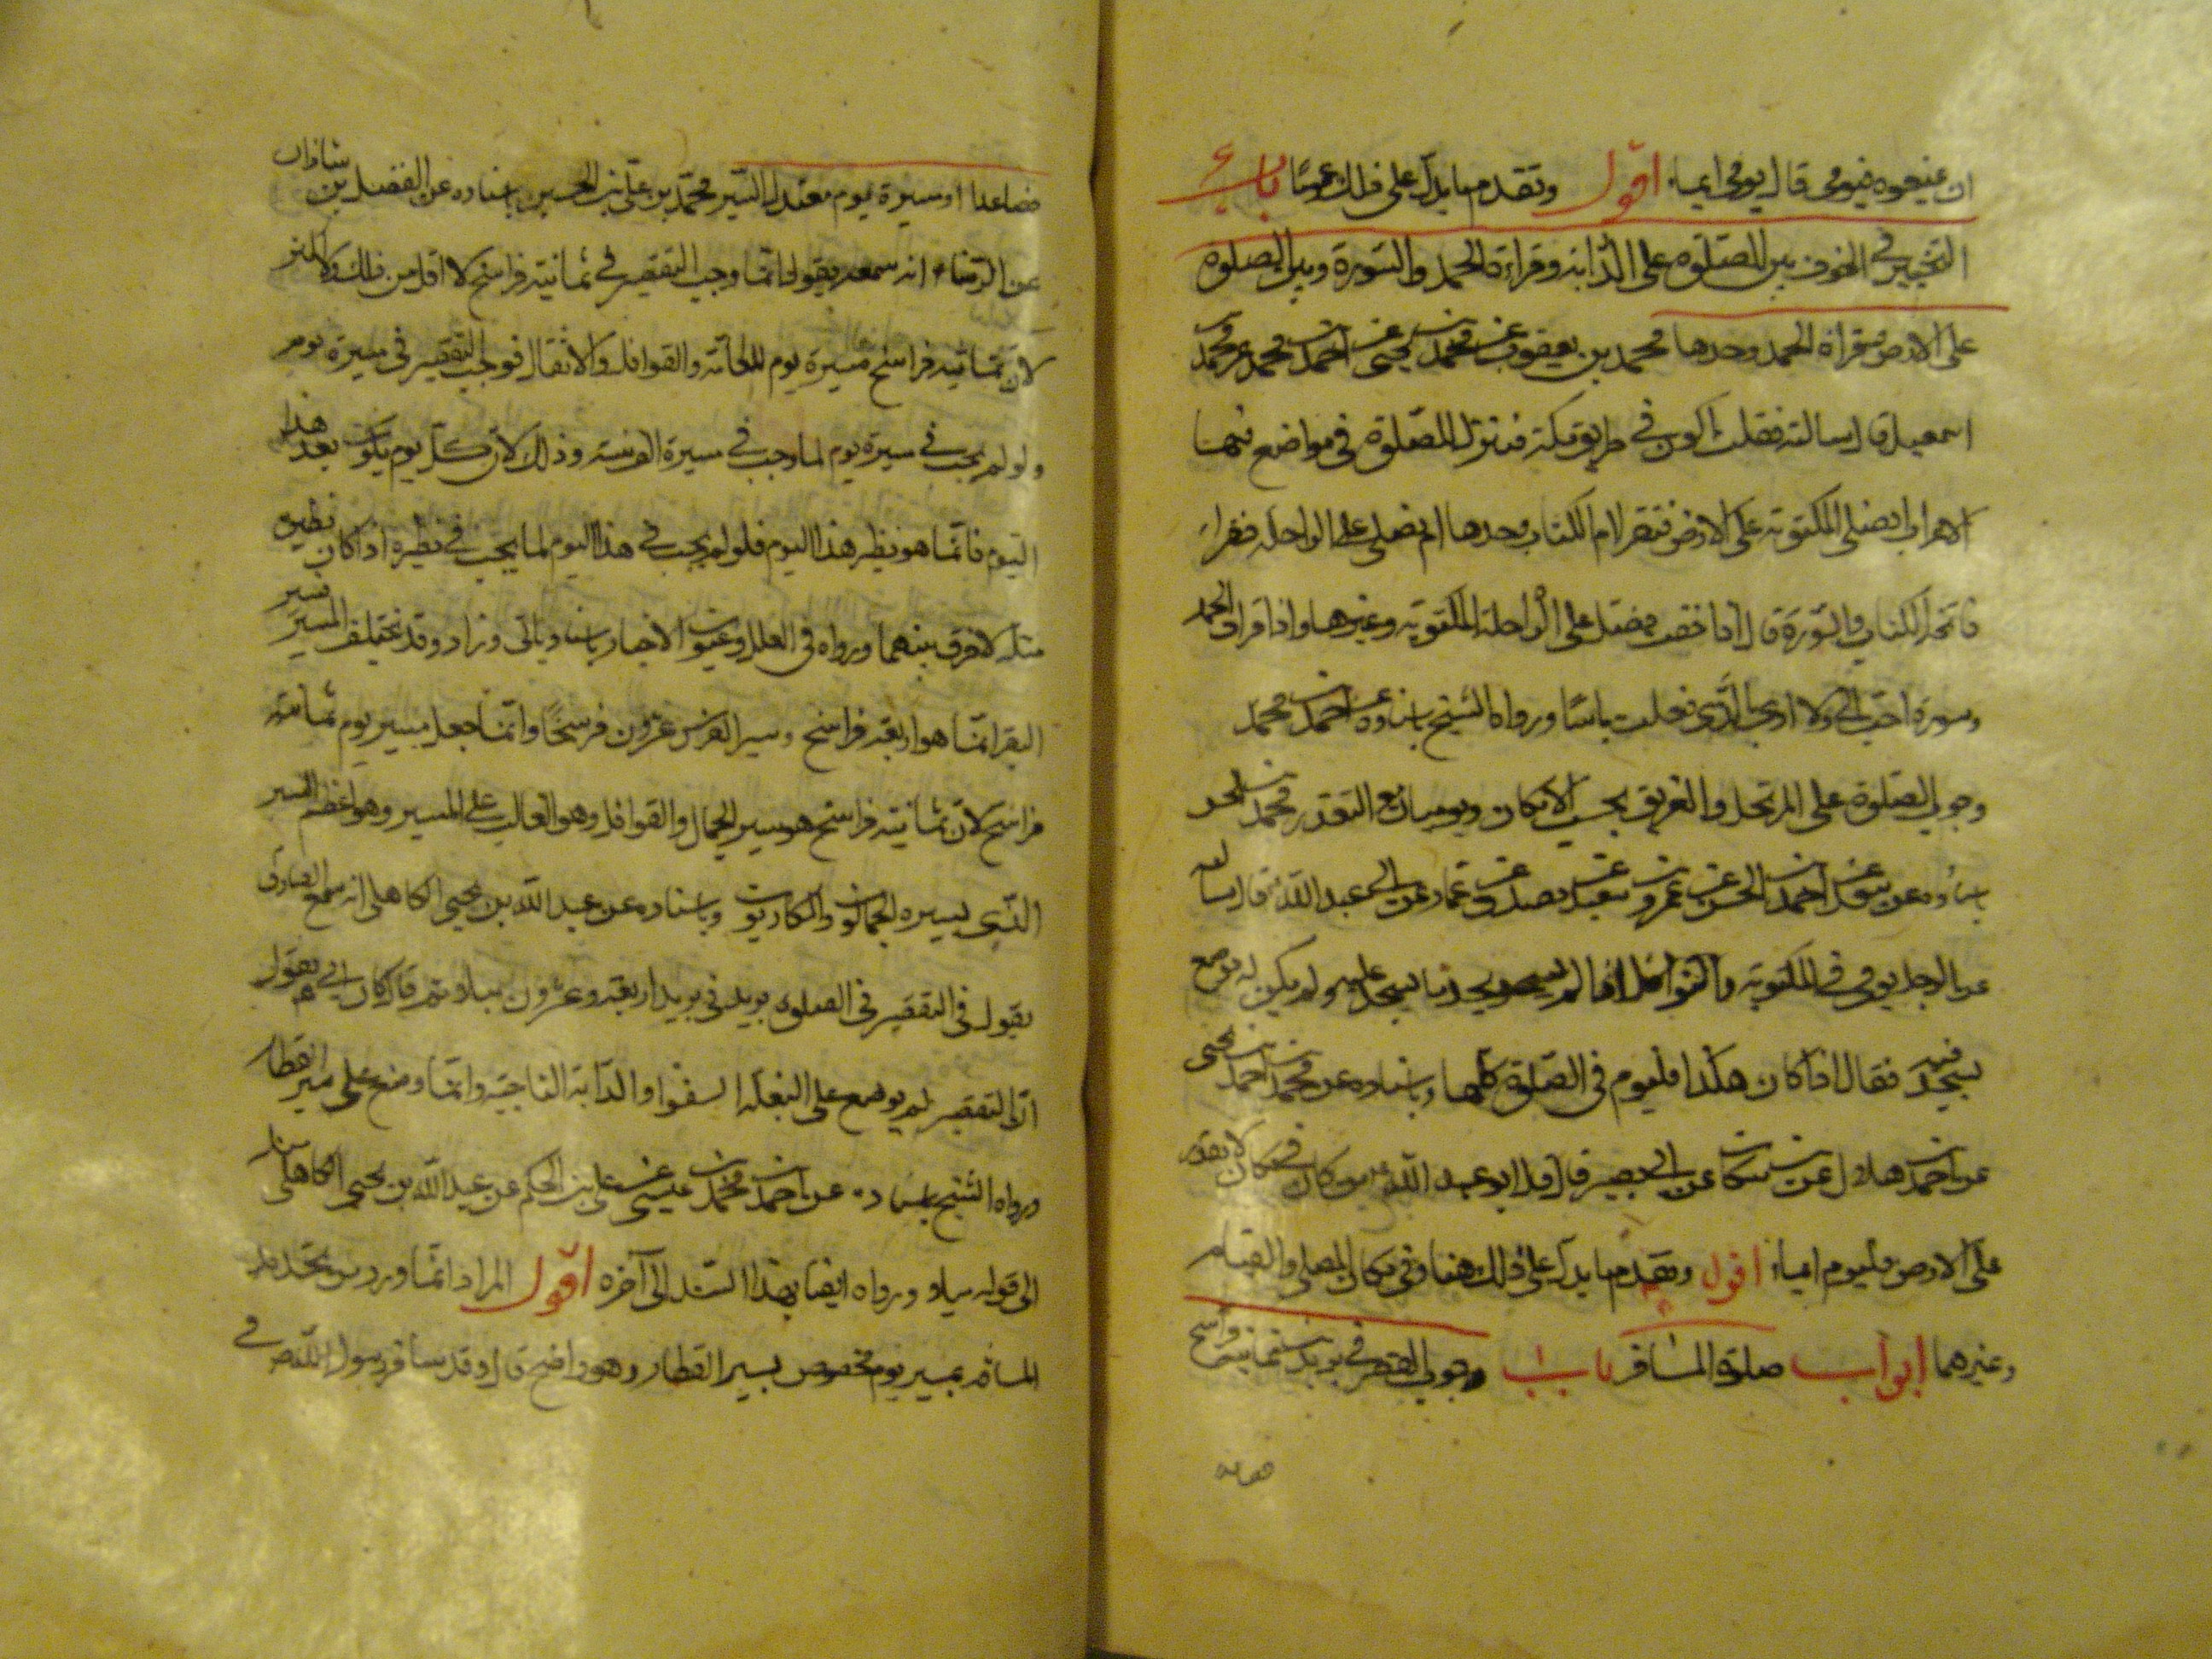 ان عنعوه فيومى قال يومى ايماء اقول وتقدم ما يدل على ذلك عموما باب
التخيير فى الخوف بين الصلوة على الدابة وقراءة الحمد والسورة وبين الصلوة
على الارض وقراءة الحمد وحدها محمد بن يعقوب عن محمد بن يحيى عن احمد بن محمد عن محمد بن
اسمعيل قال سالته فقلت اكون فى طريق مكة فننزل للصلوة فى مواضع فيها
الاعراب ايصلى المكتوبة على الارض فنقرا ام الكتاب وحدها ام نصلى على الراحلة فنقراء
فاتحة الكتاب والسورة قال اذا خفت فصل على الراحلة المكتوبة وغيرها واذا قرات الحمد
وسورة احب الى ولا ارى بالذى فعلت باسا ورواه الشيخ باسناده عن احمد بن محمد
وجوب الصلوة على الموتحل والغريق بحسب الامكان ويوميان مع التعذر محمد بن الحسن
باسناده عن سعد عن احمد بن الحسن عن عمرو بن سعيد عن مصدق عن عمار عن ابى عبد الله ع قال سالته
عن الرجل يومى فى المكتوبة والنوافل اذا لم يجد ما يسجد عليه ولم يكن له موضع
يسجد فيه فقال اذا كان هكذا فليوم فى الصلوة كلها وباسناده عن محمد بن احمد بن يحيى
عن احمد بن هلال عن ابن مسكان عن ابى بصير قال قال ابو عبد الله ع من كان فى مكان لا يقدر
على الارض فليوم ايماء اقول وتقدم ما يدل على ذلك هنا وفى مكان المصلى والقيام
وغيرهما ابواب صلوة المسافر باب ا وجوب القصر فى بريدين ثمانية فراسخ
فصاعدا او مسيرة يوم معتدل السير محمد بن على بن الحسين باسناده عن الفضل بن شاذان
عن الرضا ع انه سمعه يقول انما وجب التقصير فى ثمانية فراسخ لا اقل من ذلك ولا اكثر
لان ثمانية فراسخ مسيرة يوم للعامة والقوافل والاثقال فوجب التقصير فى مسيرة يوم
ولو لم يجب فى مسيرة يوم لما وجب فى مسيرة الف سنة وذلك لان كل يوم يكون بعد هذا
اليوم فانما هو نظير هذا اليوم فلو لم يجب فى هذا اليوم لما يجب فى نظيره اذ كان نظيره
مثله لا فرق بينهما ورواه فى العلل وعيون الاخبار باسناد ياتى وزاد وقد يختلف المسير فسير
البقر انما هو اربعة فراسخ وسير الفرس عشرون فرسخا وانما جعل مسير يوم ثمانية
فراسخ لان ثمانية فراسخ هو سير الجمال والقوافل وهو الغالب على المسير وهو اعظم السير
الذى يسيره الجمالون والمكاريون وباسناده عن عبد الله بن يحيى الكاهلى انه سمع الصادق
يقول فى التقصير فى الصلوة بريد فى بريد اربعة وعشرون ميلا ثم قال كان ابى يقول
ان التقصير لم يوضع على البغلة السفوا والدابة الناجية وانما وضع على سير القطار
ورواه الشيخ باسناده عن احمد بن محمد بن عيسى عن على بن الحكم عن عبد الله بن يحيى الكاهلى
الى قوله ميلا ورواه ايضا بهذا السند الى آخره اقول المراد انما ورد من تحديد
المسافة بمسير يوم مخصوص بسير القطار وهو واضح قال وقد سافر رسول الله ص فى